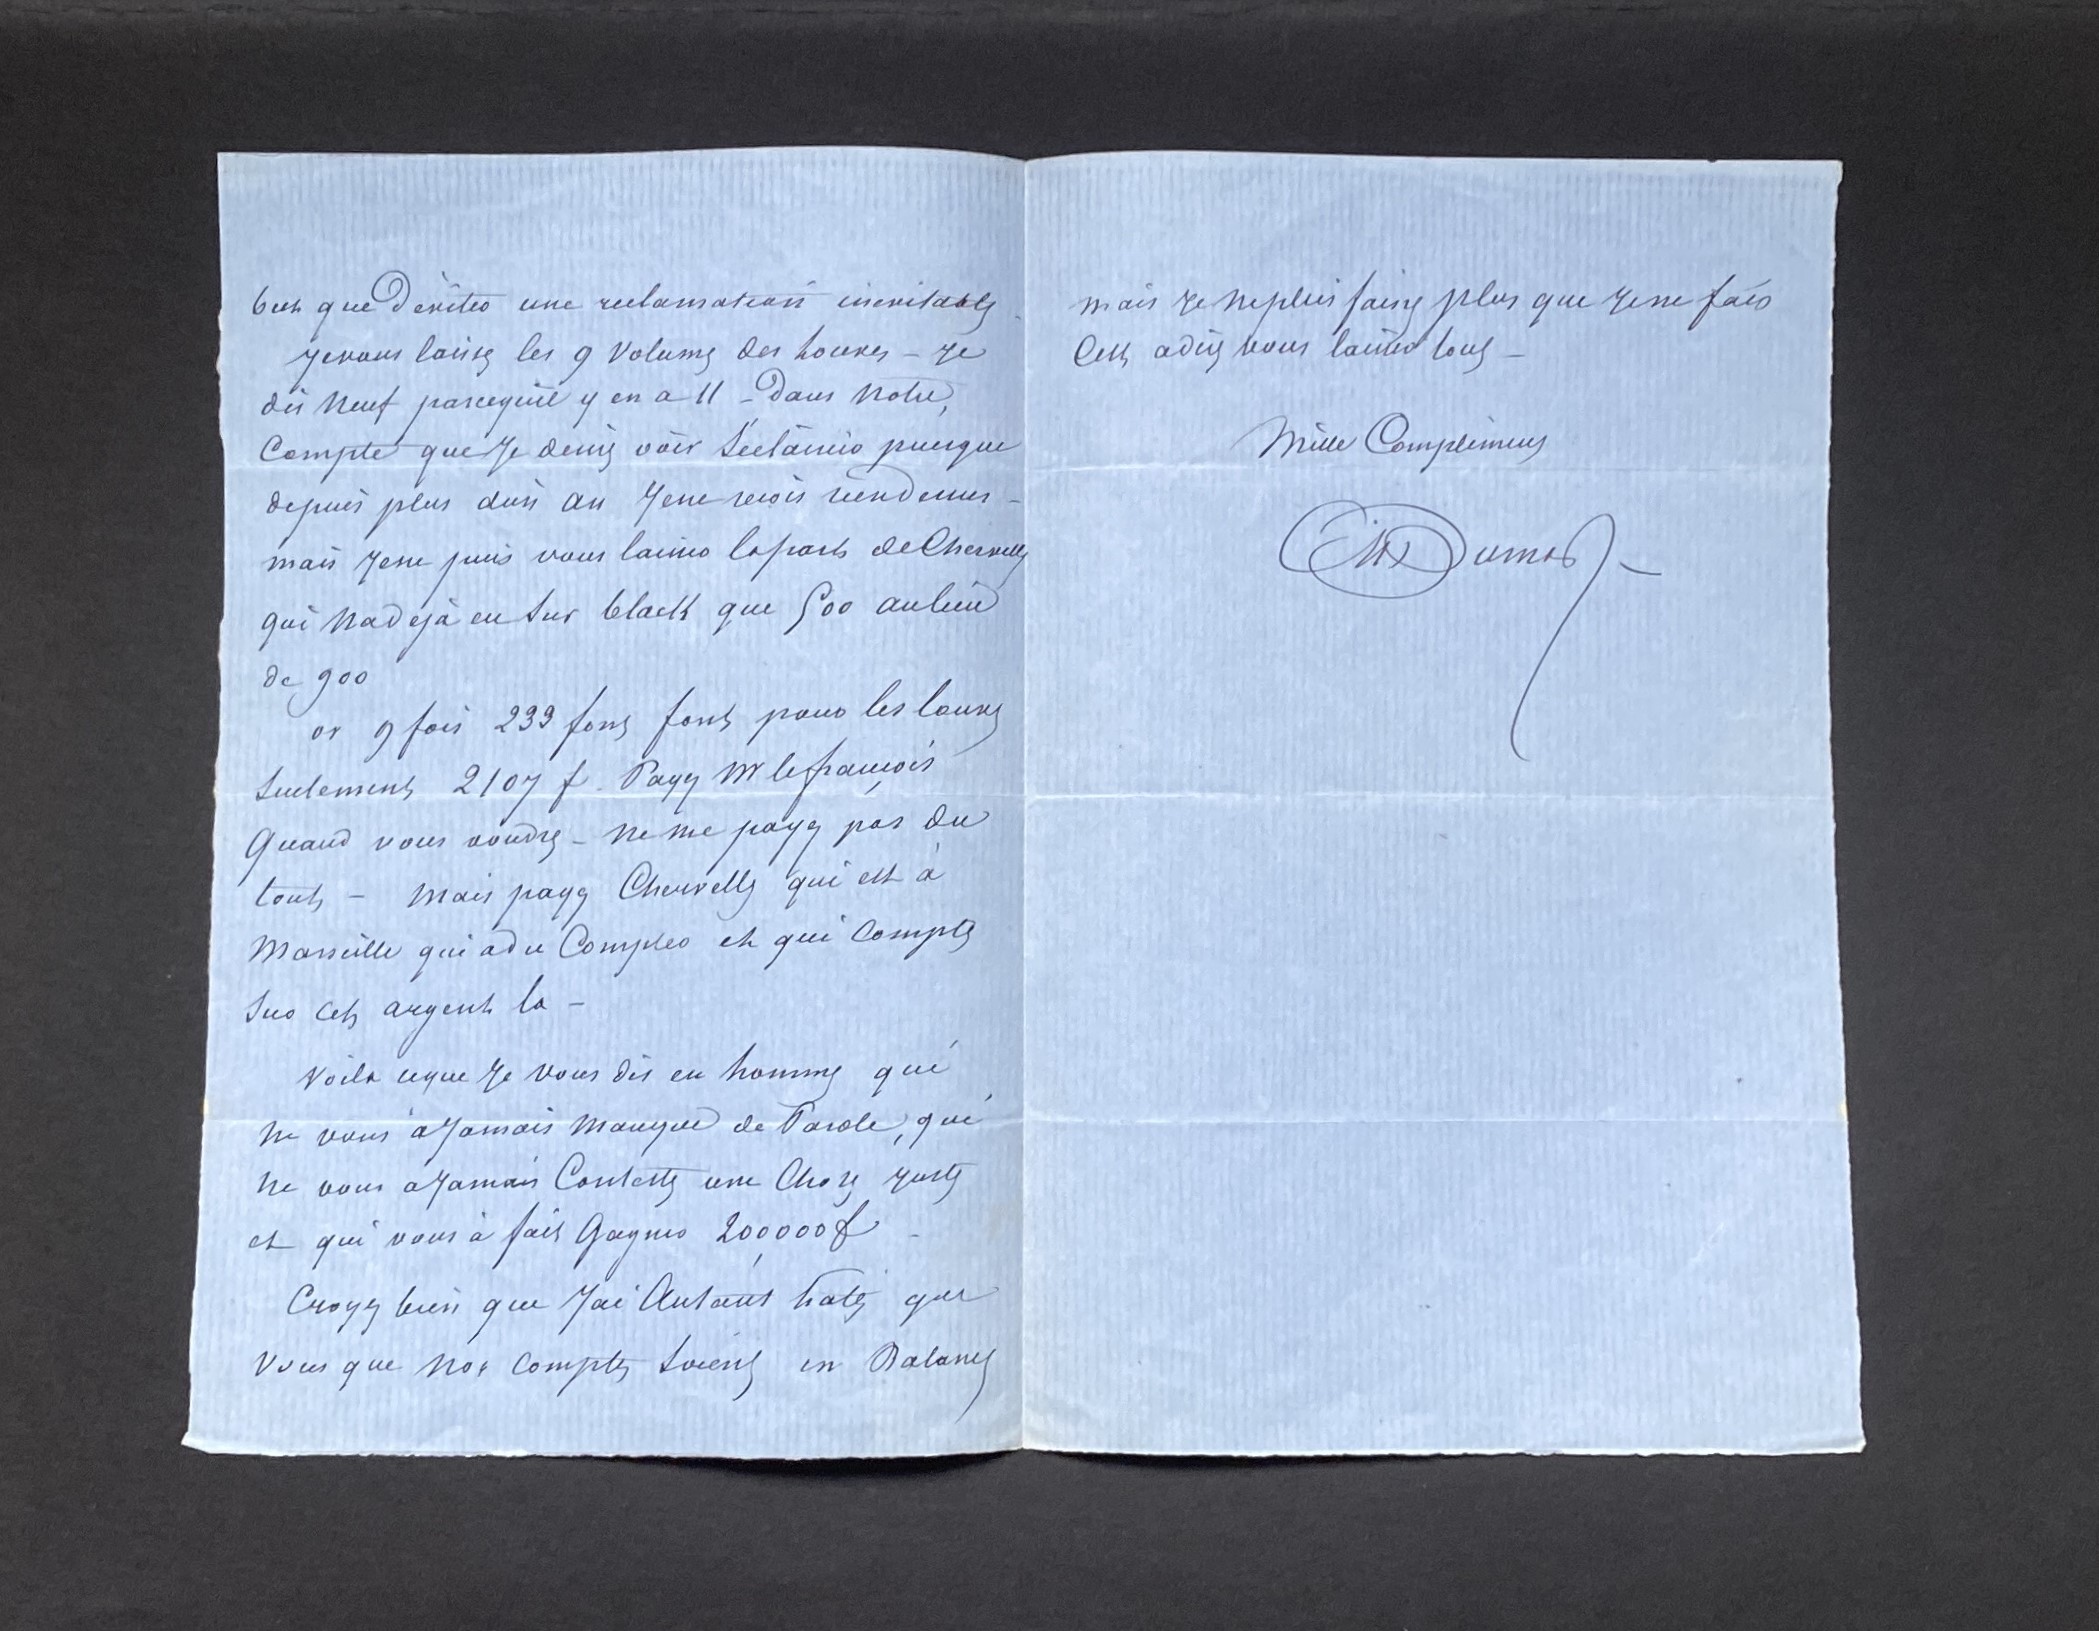 but que d'éviter une reclamation inevitable
Je vous laisse les 9 volumes des louves – Je
dis neuf parcequil y en a 11 – Dans notre
Compte que Je désire voir s'eclaircir puisque
depuis plus d'un an Je ne reçois rien dessus –
mais Je ne puis vous laisser la part de Cherville
qui na déjà eu sur black que 500 au lieu
de 900
or 9 fois 233 fons font pour les louves
seulement 2107 f. Payez Mr lefrançois
Quand vous voudrez – ne me payez pas du
tout – mais payez Cherville qui est à
Marseille qui a du Compter et qui Compte
sur cet argent la –
Voila ce que Je vous dis en homme qui
ne vous a Jamais manqué de Parole, qui
ne vous a Jamais Contesté une Chose Juste
et qui vous à fait Gagner 200000 f –
Croyez bien que J'ai Autant hate que
vous que nos comptes soient en Balance
mais Je ne puis faire plus que Je ne fais
Cest a dire vous laisser tout –
Mille Complimens
Alex Dumas